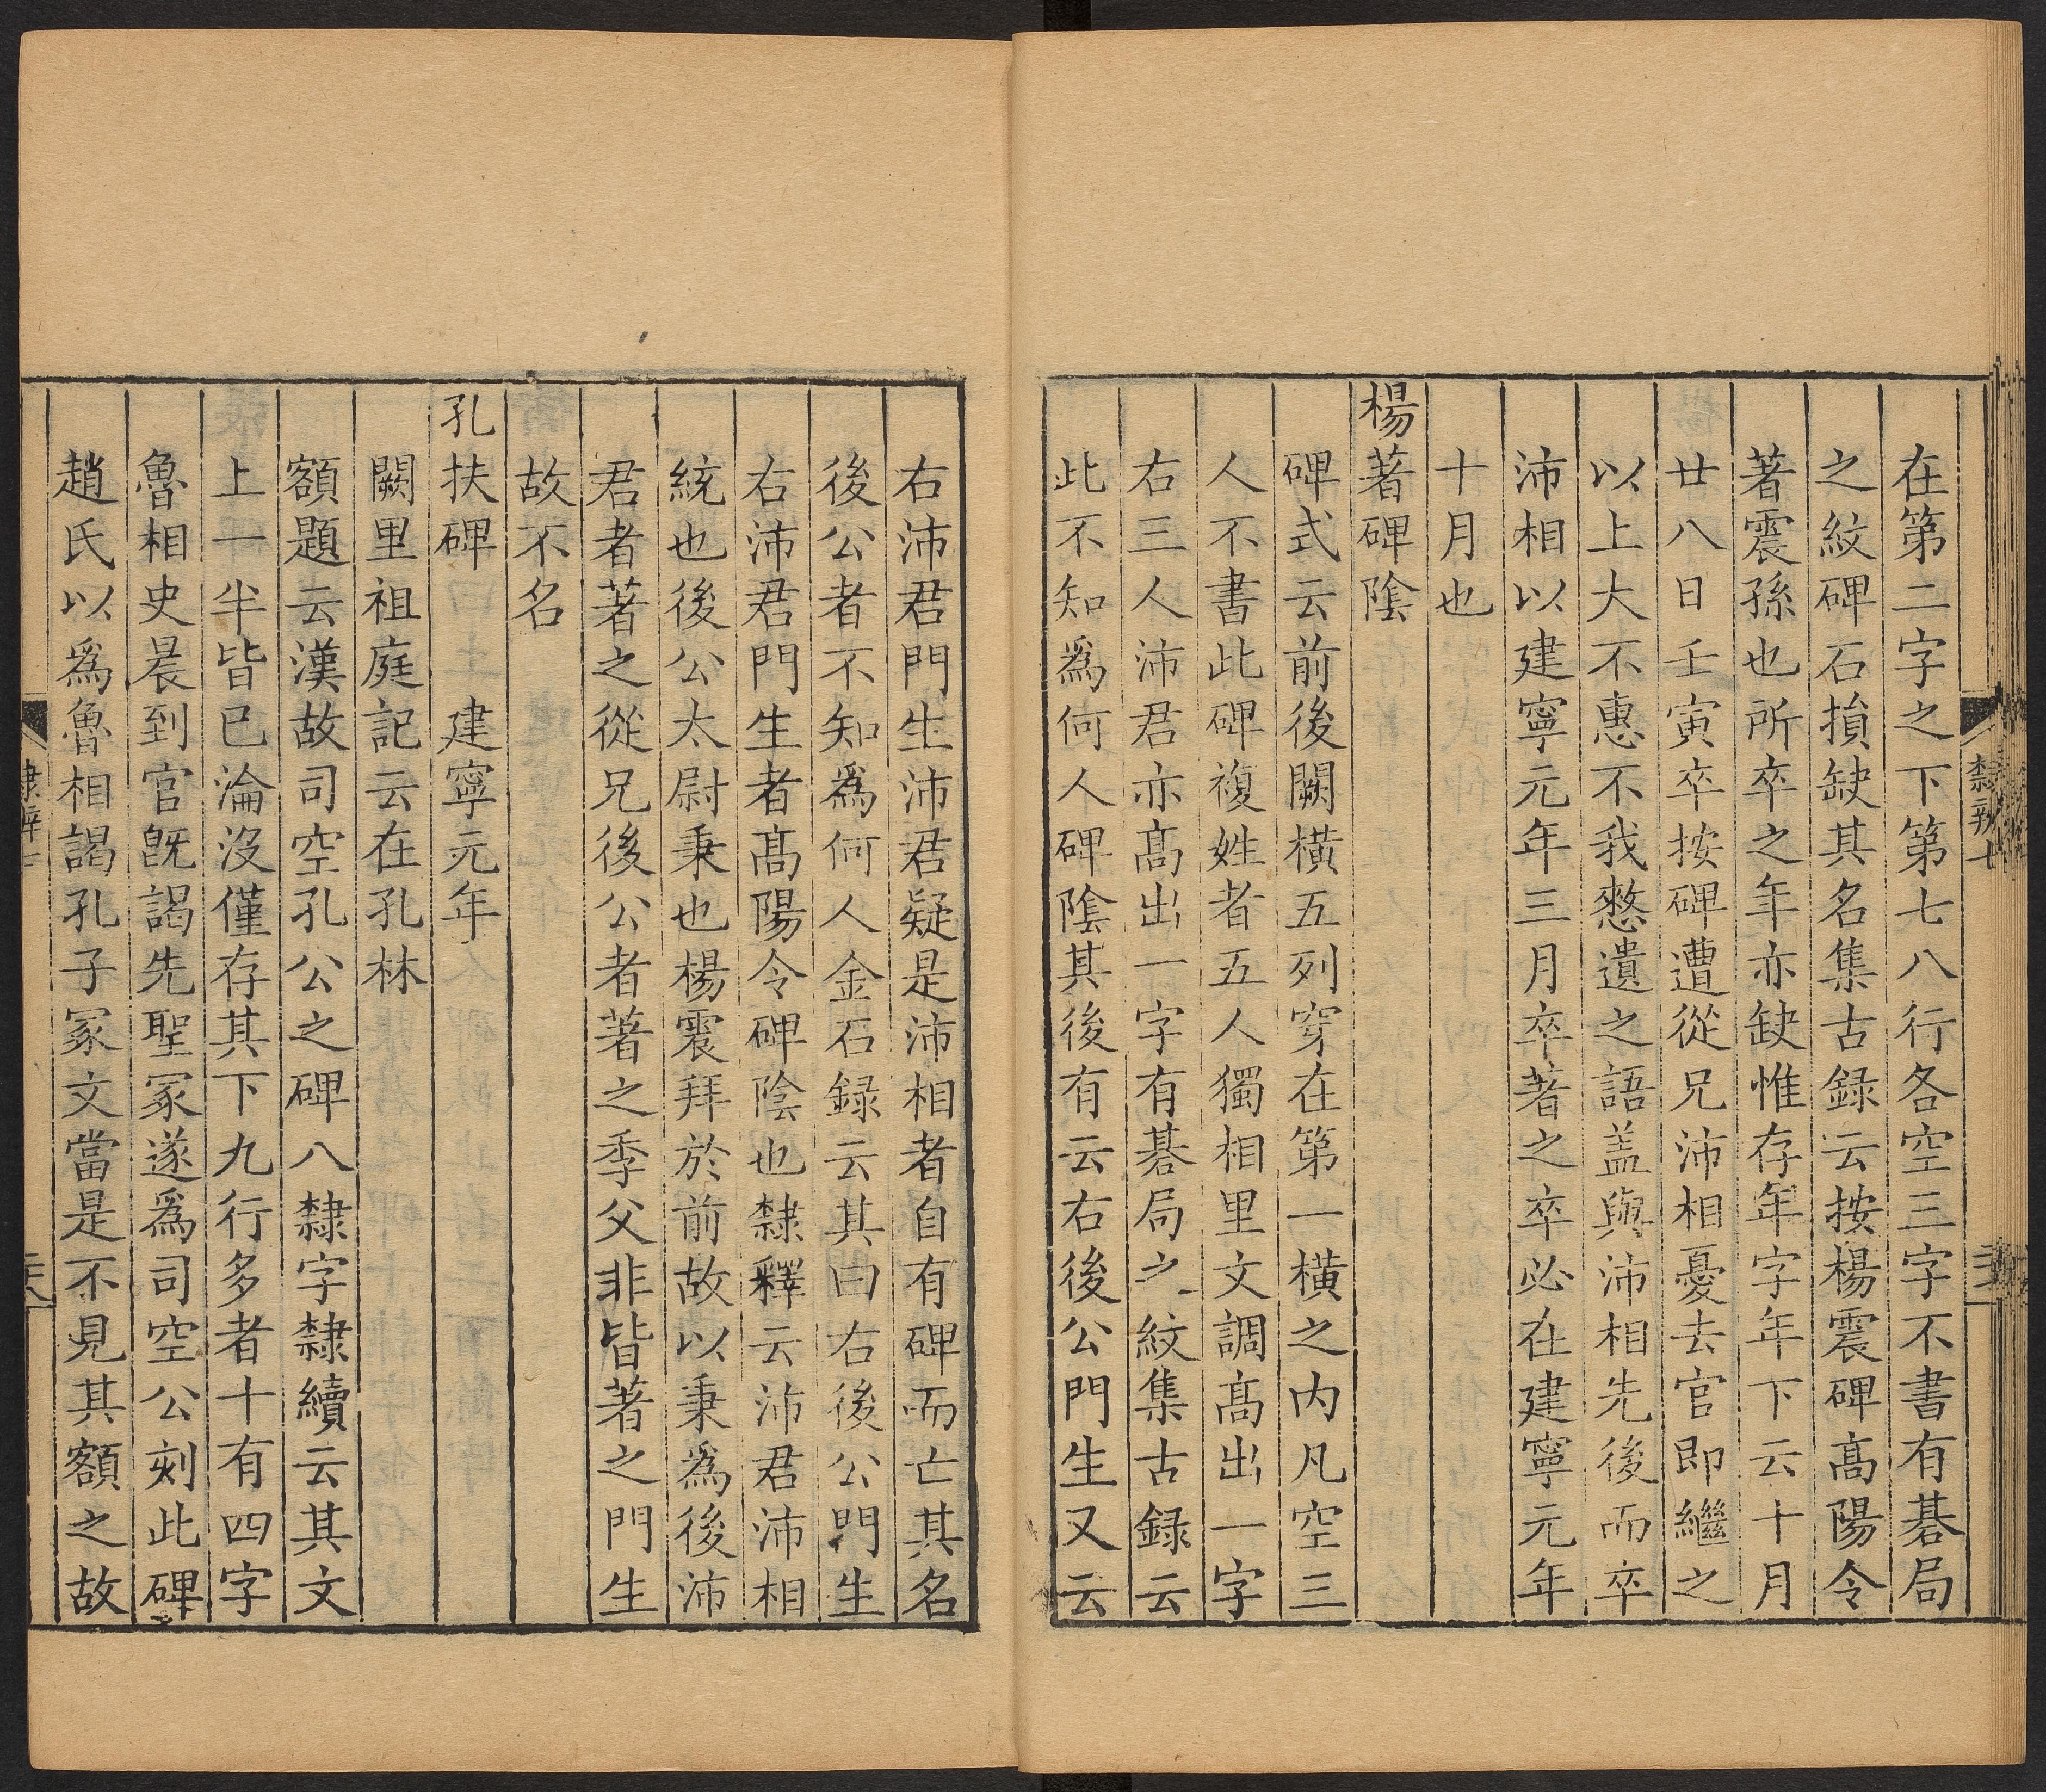 在第二字之下第七八行各空三字不書有碁局
之紋碑石損缺其名集古録云按楊震碑髙陽令
著震孫也所卒之年亦缺惟存年字年下云十月
廿八日壬寅卒按碑遭從兄沛相憂去官即繼之
以上大不惠不我憖遺之語盖與沛相先後而卒
沛相以建寧元年三月卒著之卒必在建寧元年
十月也
楊著碑陰
碑式云前後闕橫五列穿在第一橫之内凡空三
人不書此碑複姓者五人獨相里文調髙出一字
右三人沛君亦髙出一字有碁局之紋集古録云
此不知爲何人碑陰其後有云右後公門生又云
右沛君門生沛君疑是沛相者自有碑而亡其名
後公者不知爲何人金石録云其曰右後公門生
右沛君門生者髙陽令碑陰也隸釋云沛君沛相
統也後公太尉秉也楊震拜於前故以秉爲後沛
君者著之從兄後公者著之季父非皆著之門生
故不名
孔扶碑 建寧元年
闕里祖庭記云在孔林
額題云漢故司空孔公之碑八隸字隸續云其文
上一半皆已淪沒僅存其下九行多者十有四字
魯相史晨到官旣謁先聖冢遂爲司空公刻此碑
趙氏以爲魯相謁孔子冢文當是不見其額之故
隸辨七